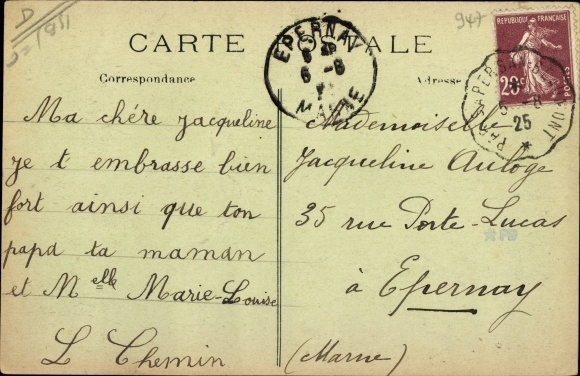 D
947
CARTE POSTALE
Correspondance
Adresse
EPERNAY
MARNE
REPUBLIQUE FRANÇAISE
20c
POSTES
25
Ma chére jacqueline
je t embrasse bien
fort ainsi que ton
papa ta maman
et Melle Marie-Louise
L Chemin
Mademoiselle
Jacqueline Auloge
35 rue Porte-Lucas
à Epernay
(Marne)